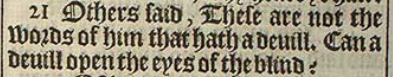 21 Others said, These are not the
words of him that hath a deuill. Can a
deuill open the eyes of the blind?